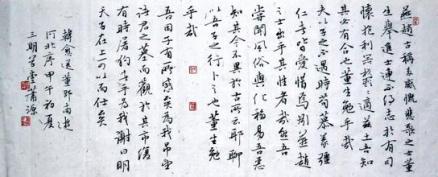 燕趙古稱多感慨悲歌之士董
生舉進士連不得志於有司
懷抱利器鬱鬱適茲土吾知
其必有合也董生勉乎哉
夫以子之不遇時苟慕義彊
仁者皆愛惜焉矧燕趙
之士出乎其性者哉然吾
嘗聞風俗與化移易吾惡
知其今不異於古所云耶聊
以吾子之行卜之也董生勉
乎哉
吾因子有所感矣為我弔望
諸君之墓而觀於其市復
有時屠狗者乎為我謝曰明
天子在上可以出而仕矣
韓愈送董邵南遊
河北序甲午初夏
堂蕭源